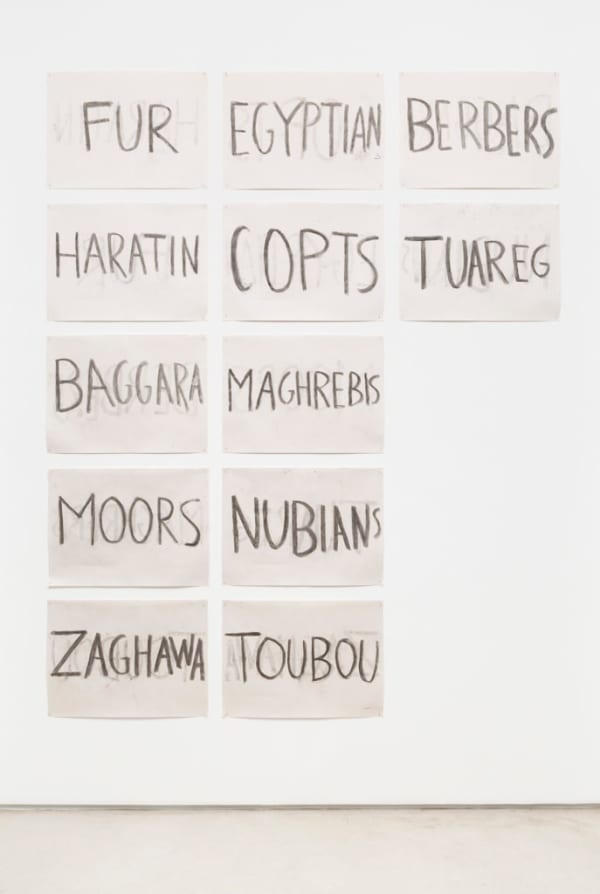 FUR
EGYPTIAN
BERBERS
HARATIN
COPTS
TUAREG
BAGGARA
MAGHREBIS
MOORS
NUBIANS
ZAGHAWA
TOUBOU